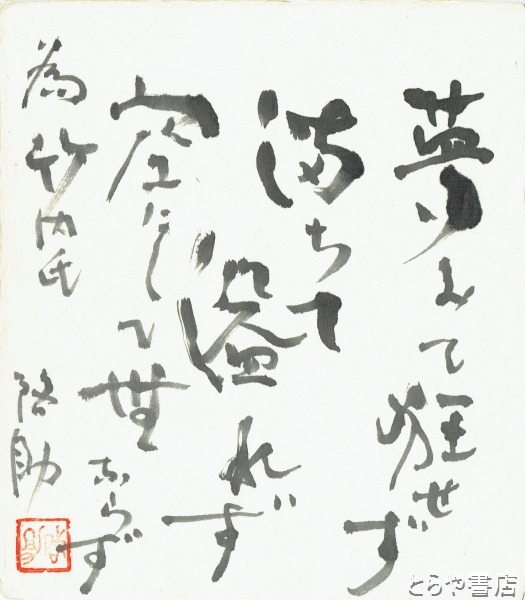 夢みて狂せず
満ちて
溢れず
空にして無
ならず
為竹内氏
啓助
とらや書店